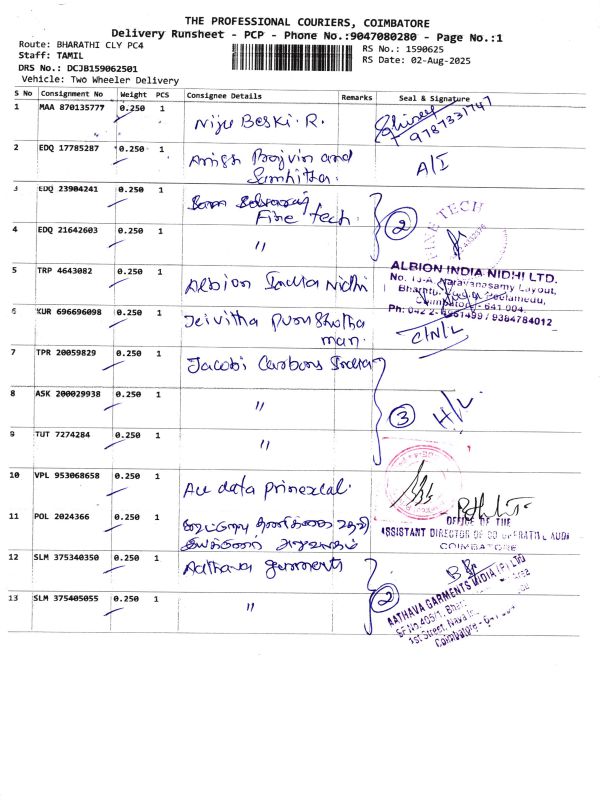 THE PROFESSIONAL COURIERS, COIMBATORE
Delivery Runsheet - PCP - Phone No.:9047080280 - Page No.:1
Route: BHARATHI CLY PC4
RS No.: 1590625
Staff: TAMIL
RS Date: 02-Aug-2025
DRS No.: DCJB159062501
Vehicle: Two Wheeler Delivery
S No Consignment No Weight PCS Consignee Details Remarks Seal & Signature
1 MAA 870135777 0.250 1 Niju Beski. R. 9787331747
2 EDQ 17785287 0.250 1 and A/I
3 EDQ 23904241 0.250 1
Fine tech. 2 FINE TECH
4 EDQ 21642603 0.250 1 "
5 TRP 4643082 0.250 1 Albion India Nidhi
ALBION INDIA NIDHI LTD.
Layout,
Peelamedu,
Coimbatore - 641 004.
9384784012
6 KUR 696696098 0.250 1 Jeivitha
man. C/N/L
7 TPR 20059829 0.250 1 Jacobi Carbons India
8 ASK 200029938 0.250 1 " 3 H/L
9 TUT 7274284 0.250 1 "
10 VPL 953068658 0.250 1 data
11 POL 2024366 0.250 1
OFFICE OF THE
ASSISTANT DIRECTOR OF CO OPERATIVE AUDI
COIMBATORE
12 SLM 375340350 0.250 1 Aathava garments
13 SLM 375405055 0.250 1 " 2
AATHAVA GARMENTS INDIA (P) LTD
SF No.405/1,
1st Street,
Coimbatore